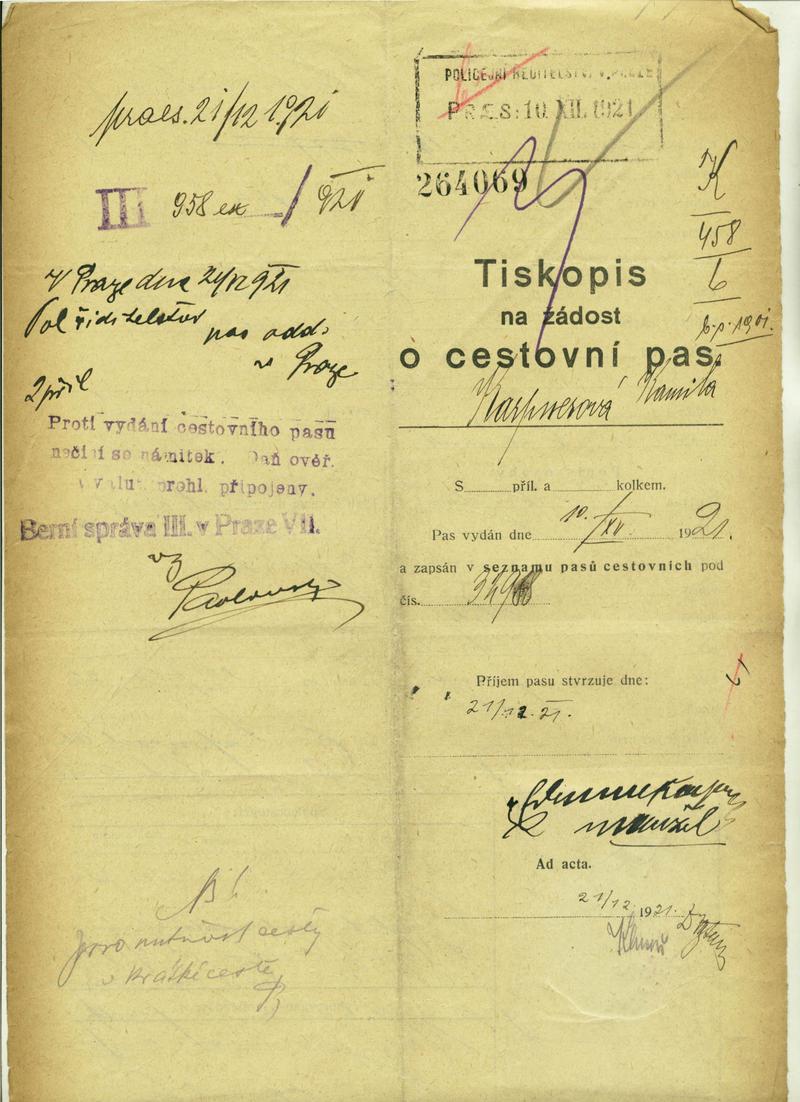 praes. 21/12 1921
III 958 ex / 921
V Praze dne 21/12 1921
Pol řiditelstvu
pas odd.
v Praze
2 příl
Proti vydání cestovního pasu
nečiní se námitek. Daň ověř.
valut. prohl. připojeny.
Berní správa III. v Praze VII.
vz
NB!
pro nutnost cesty
POLICEJNÍ ŘEDITELSTVÍ V PRAZE
PRAES: 10. XII. 1921
264069
K
458
6
Tiskopis
na žádost
o cestovní pas.
Karpnerová Kamila
S příl. a kolkem.
Pas vydán dne 10./XII. 1921.
a zapsán v seznamu pasů cestovních pod
čís.
Příjem pasu stvrzuje dne:
21/12. 21.
manžel
Ad acta.
21/12 1921.